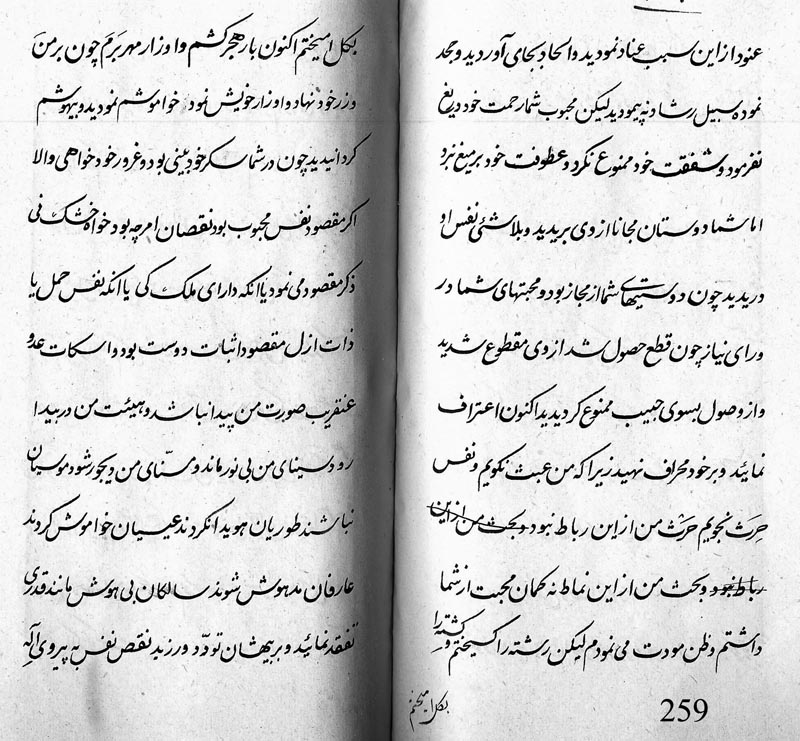 عنود از این سبب عناد نمودید و الحاد بجای آوردید و جحد
نموده سبیل رشاد نه پیمودید لیکن محبوب شما رحمت خود دریغ
نفرمود و شفقت خود ممنوع نکرد و عطوفت خود بر میغ نزد
اما شما دوستان مجانا از وی بریدید و بلاشئی نفس او
دریدید چون دوستیهای شما از مجاز بود و محبتهای شما در
ورای نیاز چون قطع حصول شد از وی مقطوع شدید
و از وصول بسوی حبیب ممنوع کردیدید اکنون اعتراف
نمائید و بر خود محراف نهید زیرا که من عبث نکویم و نفس
حرث نجویم حرث من از این رباط نبود و بحث من از این
رباط نبود و بحث من از این نماط نه کمان محبت از شما
داشتم و ظن مودت می نمودم لیکن رشته را کسیختم و کشته را
بکل امیختم
259
بکل امیختم اکنون بار هجر کشم و اوزار مهر برم چون بر من
وزر خود نهاد و اوزار خویش نمود خواموشم نمودید و بیهوشم
کردانیدید چون در شما سکر خود بینی بود و غرور خود خواهی والا
اکر مقصود نفس محبوب بود نقصان امر چه بود خواه خشک نی
ذکر مقصود می نمود یا انکه دارای ملک کی یا انکه نفس حمل یا
ذات ازل مقصود اثبات دوست بود و اسکات عدو
عنقریب صورت من پیدا نباشد و هیئت من در بیدا
رود سینای من بی نور ماند و سنای من دیجور شود موسیان
نباشند طوریان هویدا نکردند عیسیان خواموش کردند
عارفان مدهوش شوند سالکان بی هوش مانند قدری
تفقد نمائید و بر بیهشان تودد ورزید نقص نفس به پیروی اله